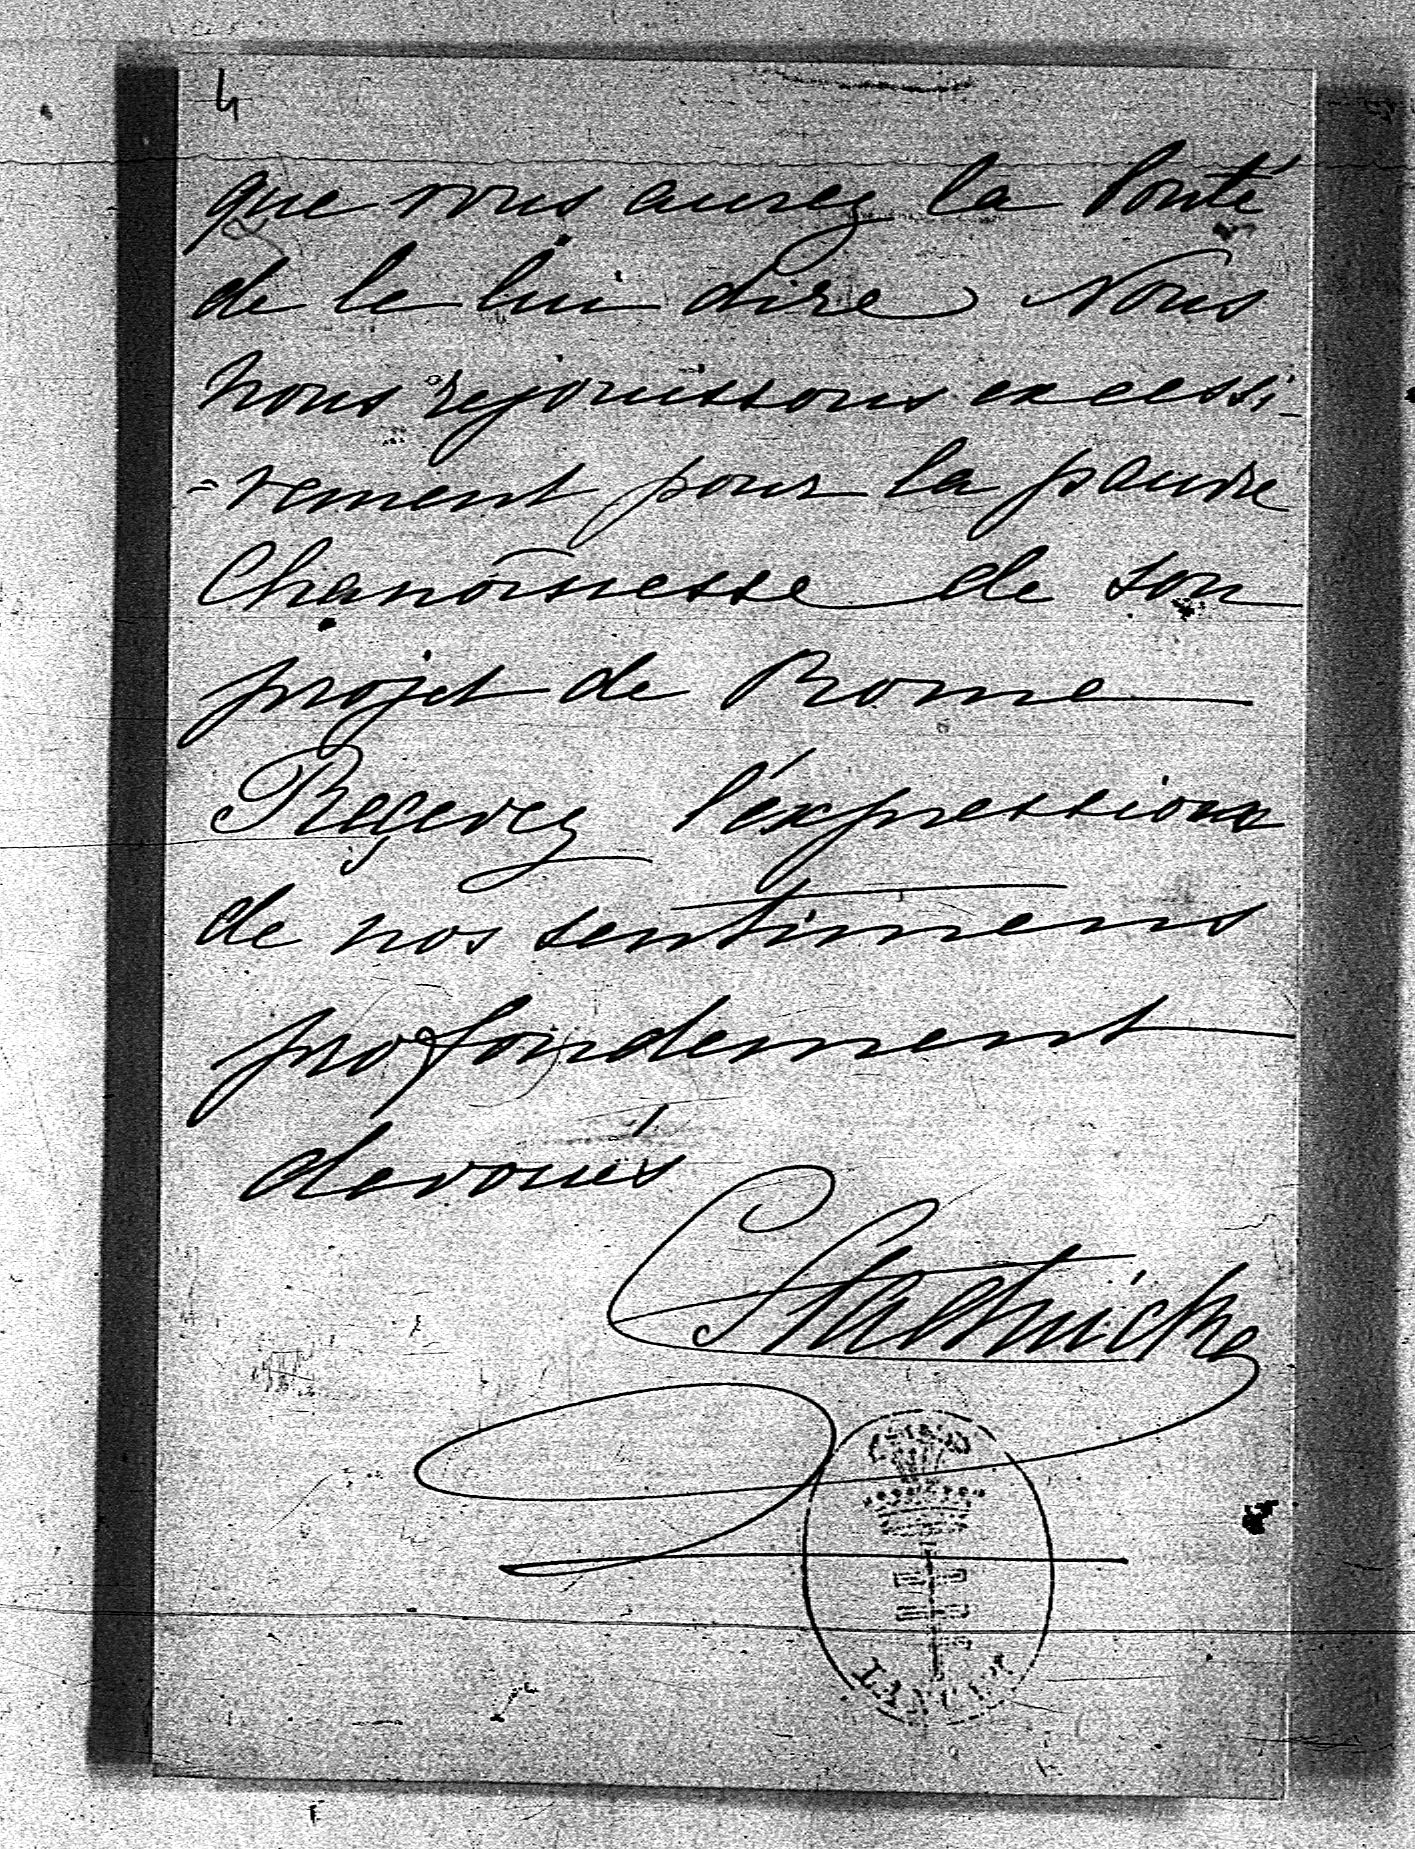 4
que vous aurez la bonté
de le lui dire Nous
nous rejouissons excessi-
-vement pour la pauvre
Chanoînesse de son
projet de Rome
Reçevez l'éxpression
de nos sentimens
profondement
devoués